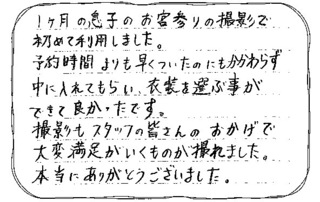 1ヶ月の息子のお宮参りの撮影で
初めて利用しました。
予約時間よりも早くついたのにもかかわらず
中に入れてもらい、衣装を選ぶ事が
できて良かったです。
撮影もスタッフの皆さんのおかげで
大変満足がいくものが撮れました。
本当にありがとうございました。